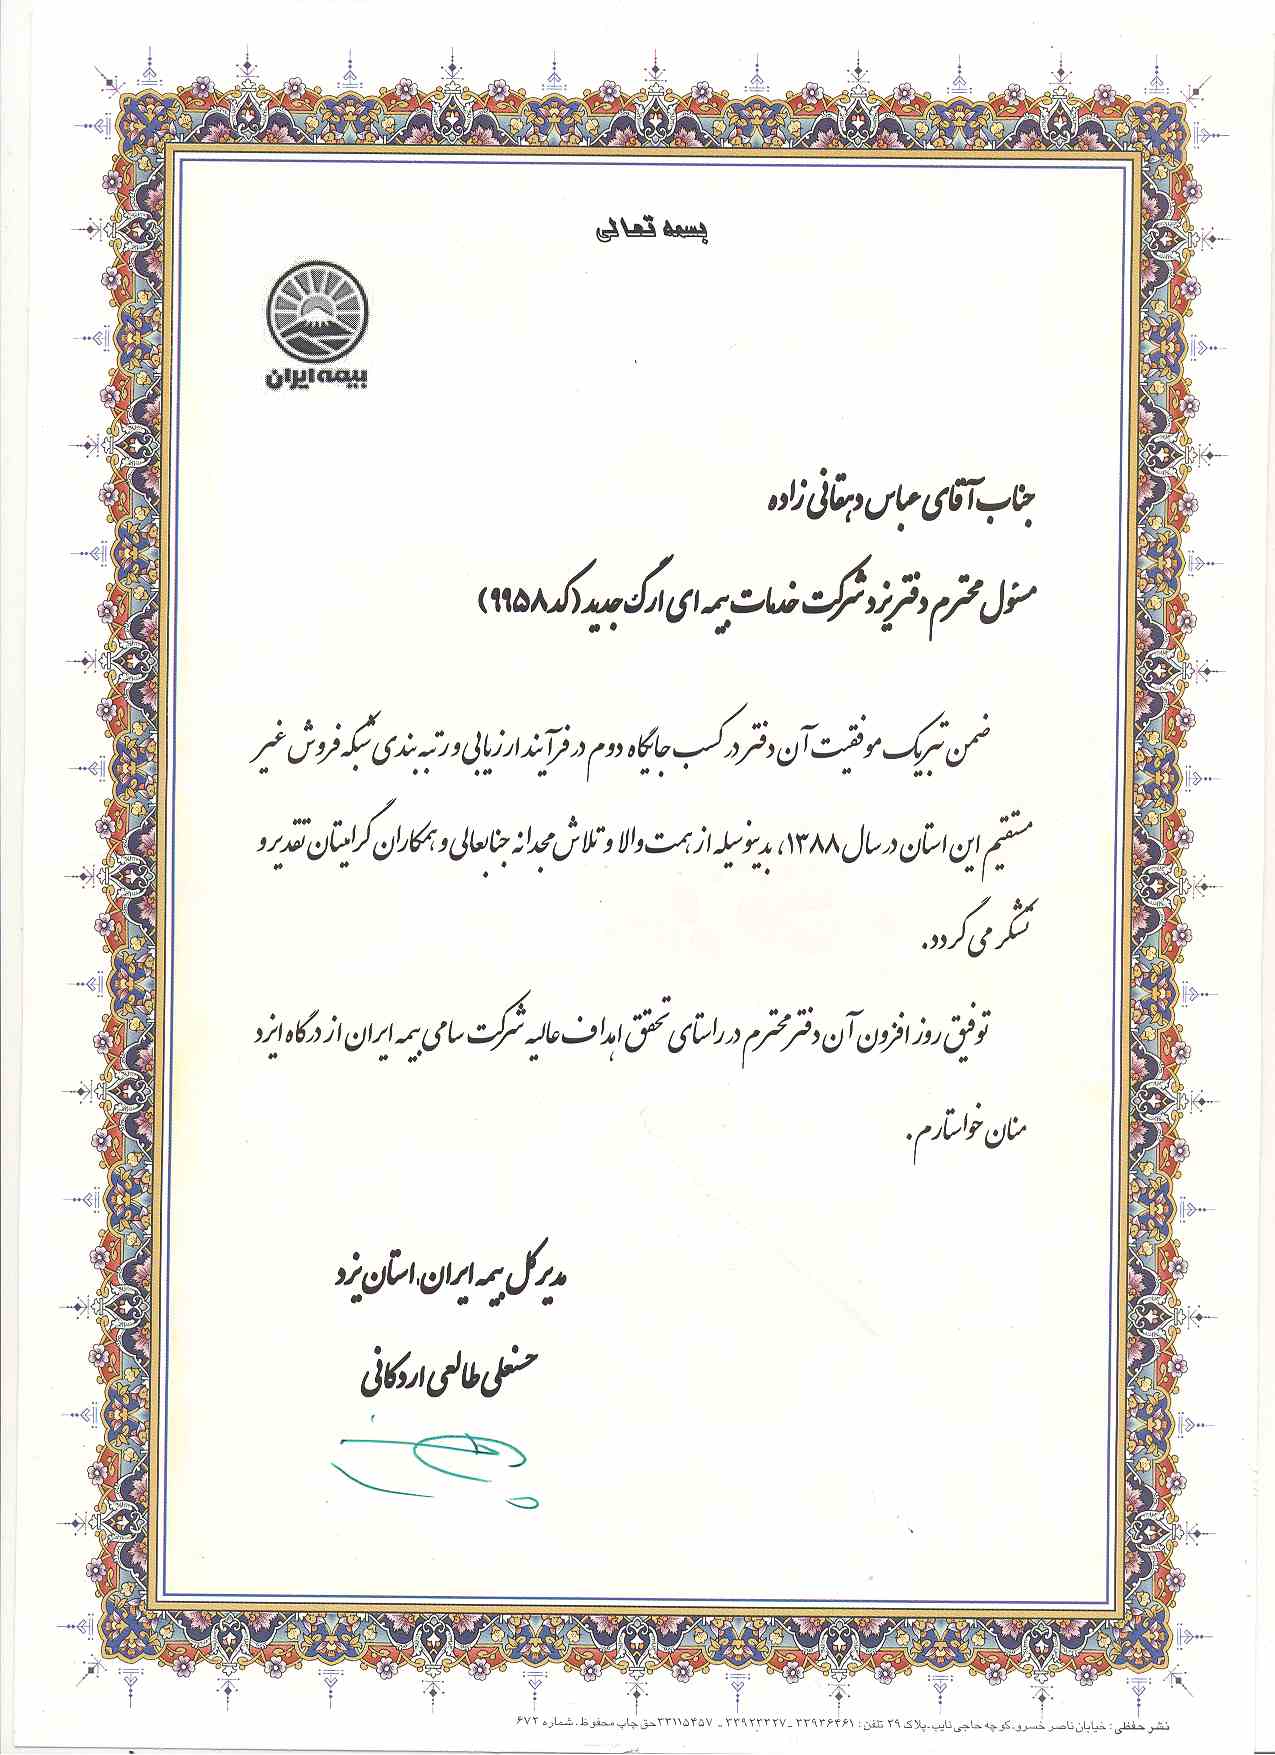 بسمه تعالی
بیمه ایران
جناب آقای عباس دهقانی زاده
مسئول محترم دفتر یزد شرکت خدمات بیمه ای ارگ جدید (کد ۹۹۵۸)
ضمن تبریک موفقیت آن دفتر در کسب جایگاه دوم در فرآیند ارزیابی و رتبه بندی شبکه فروش غیر
مستقیم این استان در سال ۱۳۸۸، بدینوسیله از همت والا و تلاش مجدانه جنابعالی و همکاران گرامیتان تقدیر و
تشکر می گردد.
توفیق روز افزون آن دفتر محترم در راستای تحقق اهداف عالیه شرکت سهامی بیمه ایران از درگاه ایزد
منان خواستارم.
مدیر کل بیمه ایران، استان یزد
حسنعلی طالعی اردکانی
نشر حفظی: خیابان ناصر خسرو، کوچه حاجی نایب، پلاک ۲۹ تلفن: ۳۳۹۳۶۴۶۱ - ۳۳۹۲۳۳۲۷ - ۳۳۱۱۵۴۵۷ حق چاپ محفوظ. شماره ۶۷۲